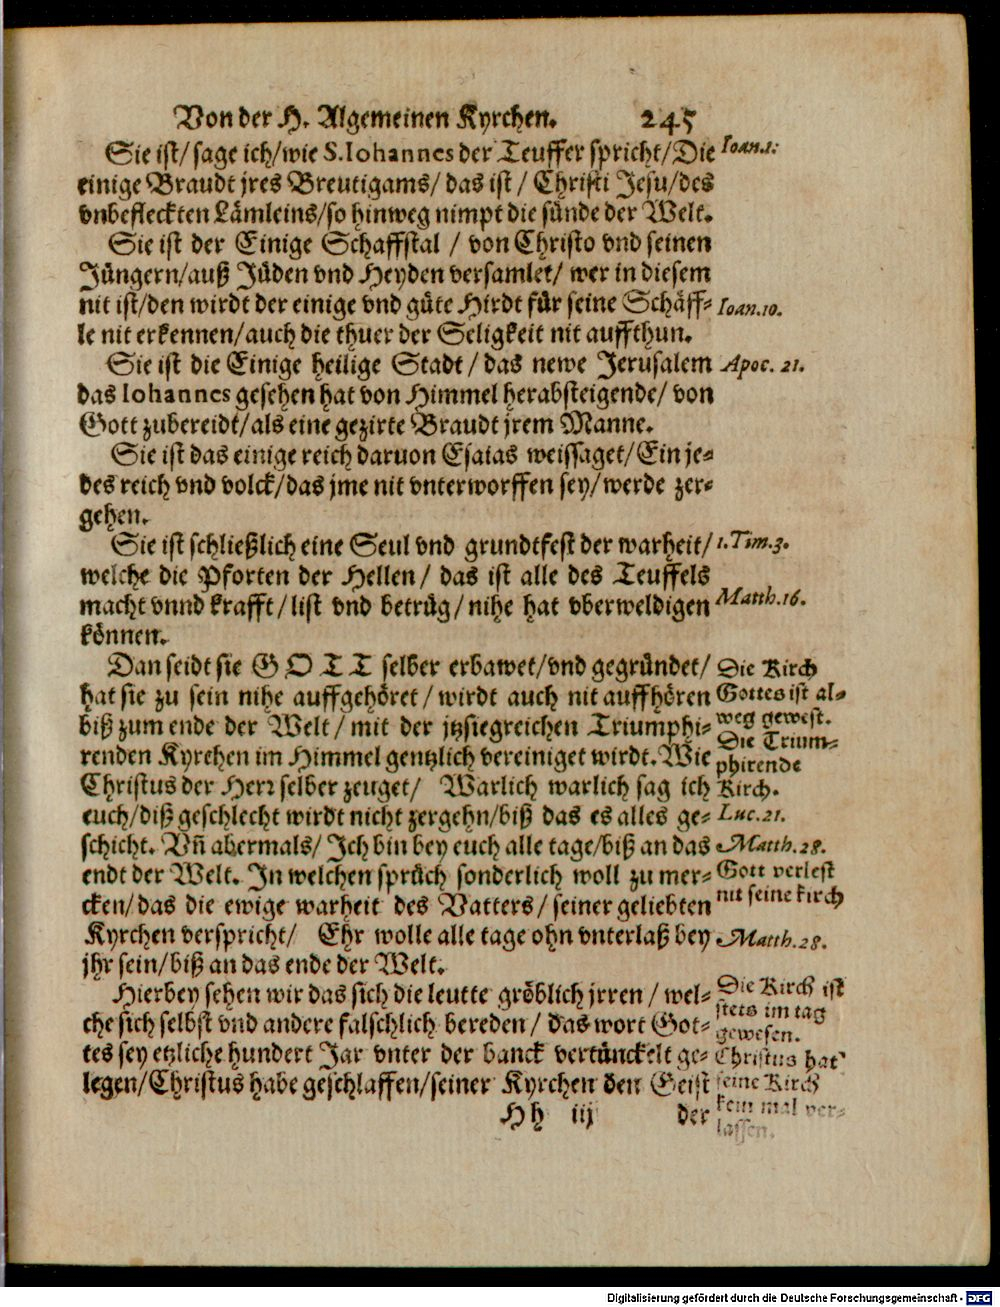 Von der H. Algemeinen Kyrchen. 245
Sie ist/ sage ich/wie S. Iohannes der Teuffer spricht/Die
einige Braudt jres Breutigams/ das ist / Christi Jesu/des
vnbefleckten Lämleins/so hinweg nimpt die sünde der Welt.
Sie ist der Einige Schaffstal / von Christo vnd seinen
Jüngern/auß Jüden vnd Heyden versamlet/ wer in diesem
nit ist/den wirdt der einige vnd güte Hirdt für seine Schäff-
le nit erkennen/auch die thuer der Seligkeit nit auffthun.
Sie ist die Einige heilige Stadt / das newe Jerusalem
das Iohannes gesehen hat von Himmel herabsteigende/ von
Gott zubereidt/als eine gezirte Braudt jrem Manne.
Sie ist das einige reich daruon Esaias weissaget/Ein je-
des reich vnd volck/das jme nit vnterworffen sey/werde zer-
gehen.
Sie ist schließlich eine Seul vnd grundtfest der warheit/
welche die Pforten der Hellen / das ist alle des Teuffels
macht vnnd krafft/list vnd betrüg/nihe hat vberweldigen
können.
Dan seidt sie GOTT selber erbawet/vnd gegründet/
hat sie zu sein nihe auffgehöret/ wirdt auch nit auffhören
biß zum ende der Welt/ mit der jtzsiegreichen Triumphi-
renden Kyrchen im Himmel gentzlich vereiniget wirdt. Wie
Christus der Herr selber zeuget/ Warlich warlich sag ich
euch/diß geschlecht wirdt nicht zergehn/biß das es alles ge-
schicht. Vñ abermals/ Ich bin bey euch alle tage/biß an das
endt der Welt. In welchen sprüch sonderlich woll zu mer-
cken/das die ewige warheit des Vatters/ seiner geliebten
Kyrchen verspricht/ Ehr wolle alle tage ohn vnterlaß bey
jhr sein/biß an das ende der Welt.
Hierbey sehen wir das sich die leutte gröblich jrren / wel-
che sich selbst vnd andere falschlich bereden / das wort Got-
tes sey etzliche hundert Jar vnter der banck vertünckelt ge-
legen/Christus habe geschlaffen/seiner Kyrchen den Geist
Hh iij der
Ioan.1:
Ioan.10.
Apoc. 21.
1.Tim.3.
Matth.16.
Die Kirch
Gottes ist al-
weg gewest.
Die Trium-
phirende
Kirch.
Luc.21.
Matth.28.
Gott verlest
nit seine kirch
Matth.28.
Die Kirch ist
stets im tag
gewesen.
Christus hat
seine Kirch
kein mal ver-
lassen.
Digitalisierung gefördert durch die Deutsche Forschungsgemeinschaft - DFG